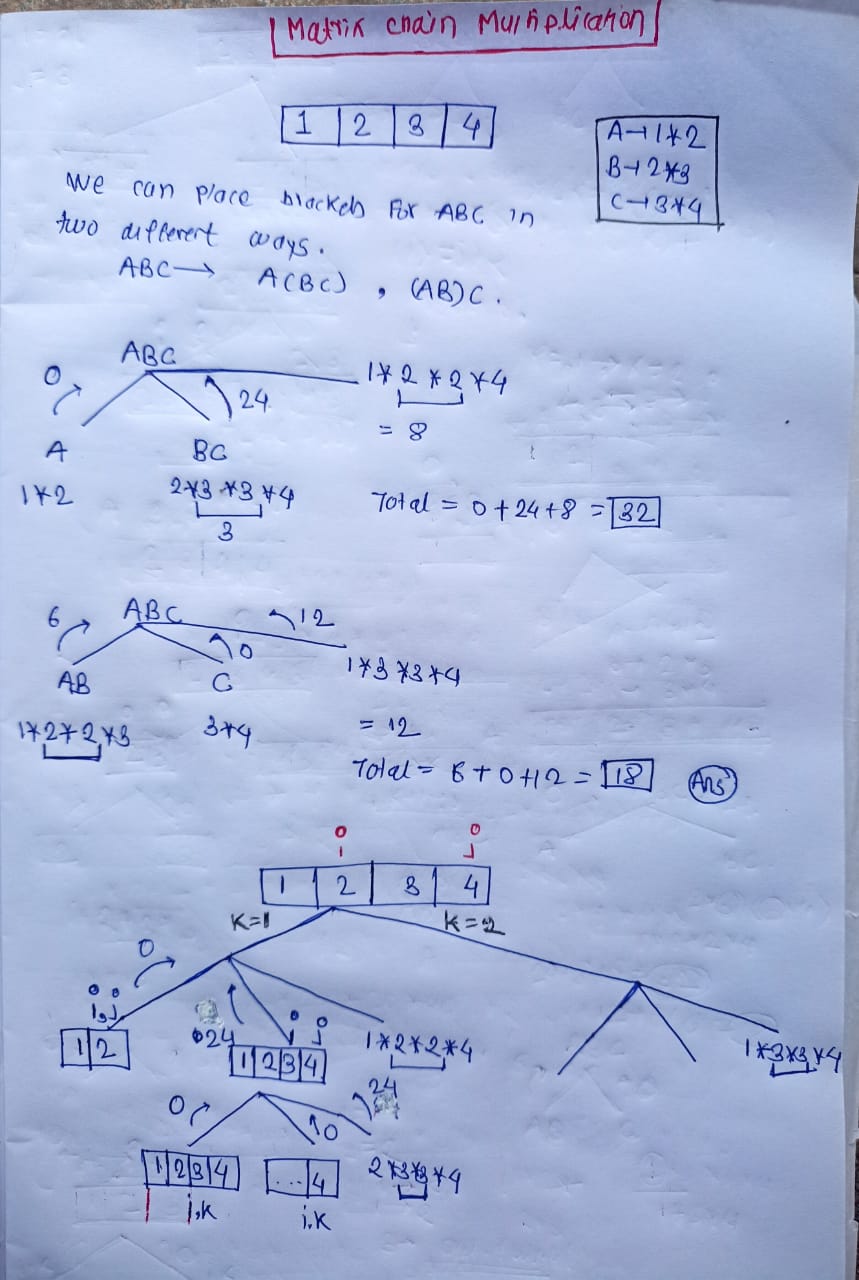 Matrix chain Multiplication
1 2 3 4
A→1*2
B→2*3
C→3*4
We can place brackets For ABC in
two different ways.
ABC→ A(BC) , (AB)C .
ABC
0
24
1*2*2*4
= 8
A
BC
1*2
2*3*3*4
3
Total = 0+24+8 = 32
6
ABC
12
0
1*3*3*4
AB
C
1*2*2*3
3*4
= 12
Total = 6+0+12 = 18 Ans
i j
1 2 3 4
K=1
K=2
0
i,j
1 2
24
i j
1 2 3 4
1*2*2*4
1*3*3*4
0
0
24
1 2 3 4
... 4
2*3*3*4
i,k
i,k